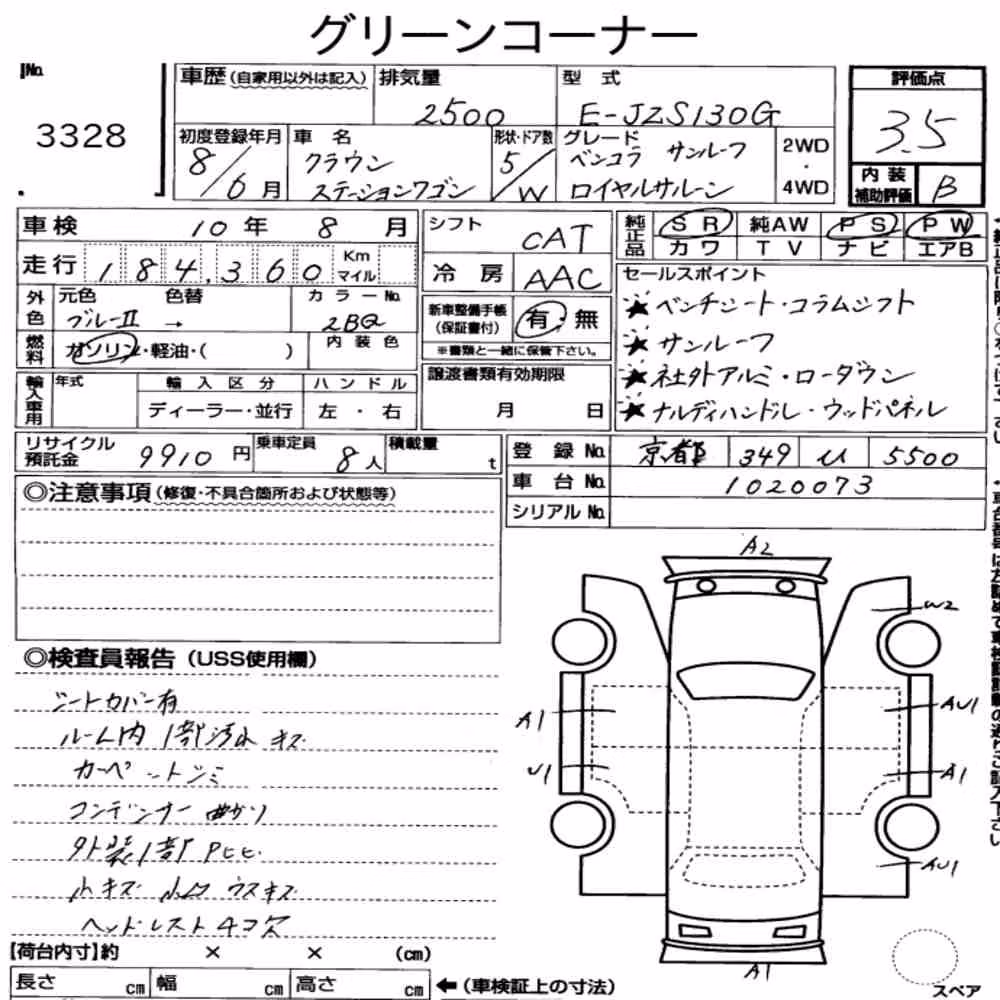 グリーンコーナー
No.
3328
車歴(自家用以外は記入)
排気量
2500
型 式
E-JZS130G
評価点
3.5
初度登録年月
8/6月
車 名
クラウン
ステーションワゴン
形状・ドア数
5/W
グレード
ベンコラ サンルーフ
ロイヤルサルーン
2WD
・
4WD
内 装
補助評価
B
車検 10年 8月
シフト
CAT
純正品
SR 純AW PS PW
カワ TV ナビ エアB
走行 184,360 Km
マイル
冷房
AAC
セールスポイント
★ベンチシート・コラムシフト
★サンルーフ
★社外アルミ・ローダウン
★ナルディハンドル・ウッドパネル
外色
元色 色替 カラーNo.
ブルーII → 2BQ
新車整備手帳
(保証書付)
有 無
※書類と一緒に保管下さい。
燃料
ガソリン・軽油・( )
内装色
譲渡書類有効期限
月 日
輸入車用
年式
輸入区分
ハンドル
ディーラー・並行
左・右
リサイクル
預託金
9910円
乗車定員
8人
積載量
t
登録No.
京都 349 ﾑ 5500
車台No.
1020073
シリアルNo.
◎注意事項(修復・不具合箇所および状態等)
◎検査員報告(USS使用欄)
シートカバー有
ルーム内 1部汚れ キズ
カーペットシミ
コンデンサー曲がり
外装1部Pヒヒ
小キズ 小凹 ウスキズ
ヘッドレスト4コ欠
A2
W2
A1
AU1
U1
A1
AU1
A1
スペア
【荷台内寸】約 × × (cm)
長さ cm 幅 cm 高さ cm
←(車検証上の寸法)